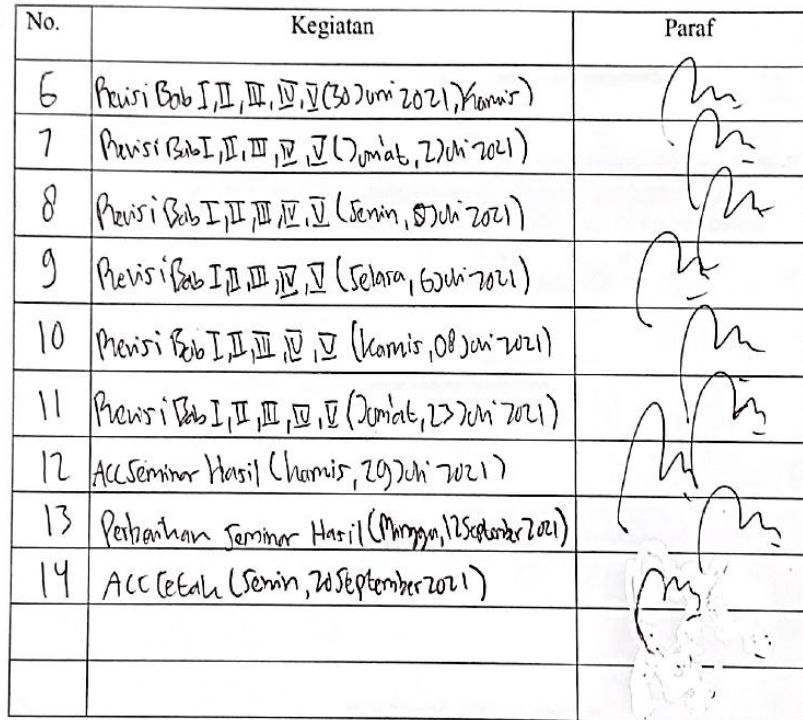 No. Kegiatan Paraf
6 Revisi Bab I, II, III, IV, V (30 Juni 2021, Kamis)
7 Revisi Bab I, II, III, IV, V (Jum'at, 2 Juli 2021)
8 Revisi Bab I, II, III, IV, V (Senin, Juli 2021)
9 Revisi Bab I, II, III, IV, V (Selasa, 6 Juli 2021)
10 Revisi Bab I, II, III, IV, V (Kamis, 08 Juli 2021)
11 Revisi Bab I, II, III, IV, V (Jum'at, 23 Juli 2021)
12 ACC Seminar Hasil (Kamis, 29 Juli 2021)
13 Perbaikan Seminar Hasil (Minggu, 12 September 2021)
14 ACC Cetak (Senin, 20 September 2021)